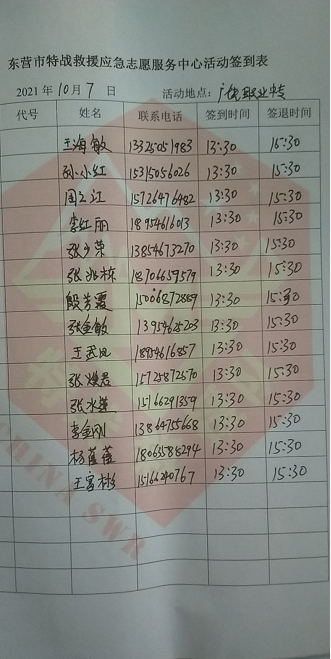 东营市特战救援应急志愿服务中心活动签到表
2021年10月7日 活动地点：广饶职业中专
代号 姓名 联系电话 签到时间 签退时间
王海敏 13:30 15:30
孙小红 15315056026 13:30 15:30
周立江 15726476482 13:30 15:30
李红丽 18954616013 13:30 15:30
张少荣 13854673270 13:30 15:30
张兆栋 18706659579 13:30 15:30
殷芳霞 15006872889 13:30 15:30
张金敏 13954625203 13:30 15:30
王武 18954616857 13:30 15:30
张 15725872570 13:30 15:30
张水莲 15166291359 13:30 15:30
李金刚 13864755668 13:30 15:30
杨莲莲 18063588294 13:30 15:30
王富彬 15166240767 13:30 15:30
特战
CHINA SWR